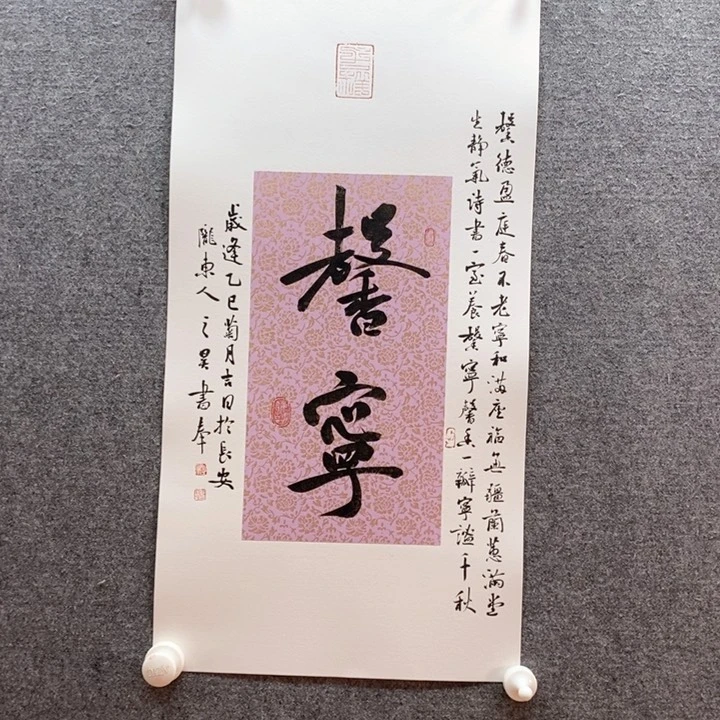 馨德盈庭春不老寧和滿座福無疆蘭蕙滿堂
生靜氣诗書一室養馨寧馨香一瓣寧謐千秋
馨寧
歲逢乙巳菊月吉日於長安
隴東人之昊書奉